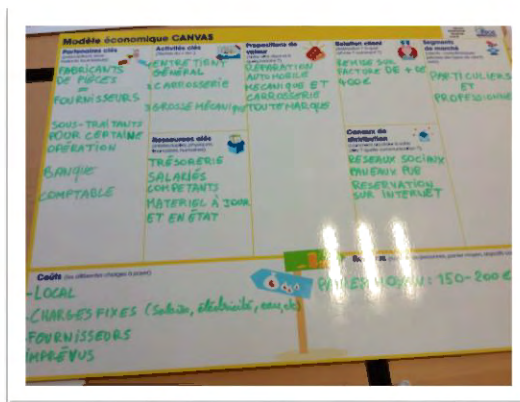 Modèle économique CANVAS
Partenaires clés
FABRICANTS
DE PIÈCES
=
FOURNISSEURS
SOUS-TRAITANTS
POUR CERTAINE
OPÉRATION
BANQUE
COMPTABLE
Activités clés
ENTRETIEN
GÉNÉRAL
CARROSSERIE
GROSSE MÉCANIQUE
Ressources clés
TRÉSORERIE
SALARIÉS
COMPETANTS
MATERIEL À JOUR
ET EN ÉTAT
Propositions de
valeur
RÉPARATION
AUTOMOBILE
MECANIQUE ET
CARROSSERIE
TOUTE MARQUE
Relation client
REMISE SUR
FACTURE DE + DE
400€
Canaux de
distribution
RESEAUX SOCIAUX
PANEAUX PUB
RESERVATION
SUR INTERNET
Segments
de marché
PARTICULIERS
ET
PROFESSIONNE
Coûts (les différentes charges à payer)
-LOCAL
-CHARGES FIXES (Salaire, éléctricité, eau, etc)
-FOURNISSEURS
IMPRÉVUS
PANIER MOYEN: 150-200€